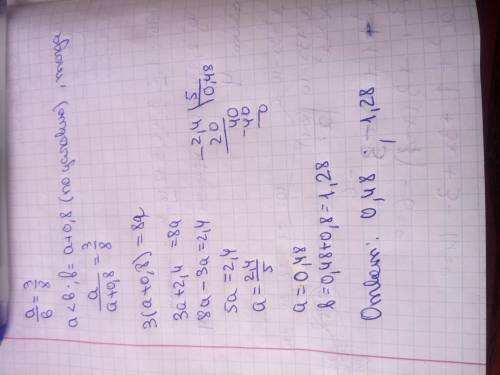 a/в = 3/8
a < в ; в = a+0,8 (по условию), тогда
a/(a+0,8) = 3/8
3(a+0,8) = 8a
3a+2,4 = 8a
8a - 3a = 2,4
5a = 2,4
a = 2,4/5
-2,4 | 5
20 | 0,48
40
-40
0
a = 0,48
в = 0,48+0,8 = 1,28
Ответ: 0,48 ; 1,28